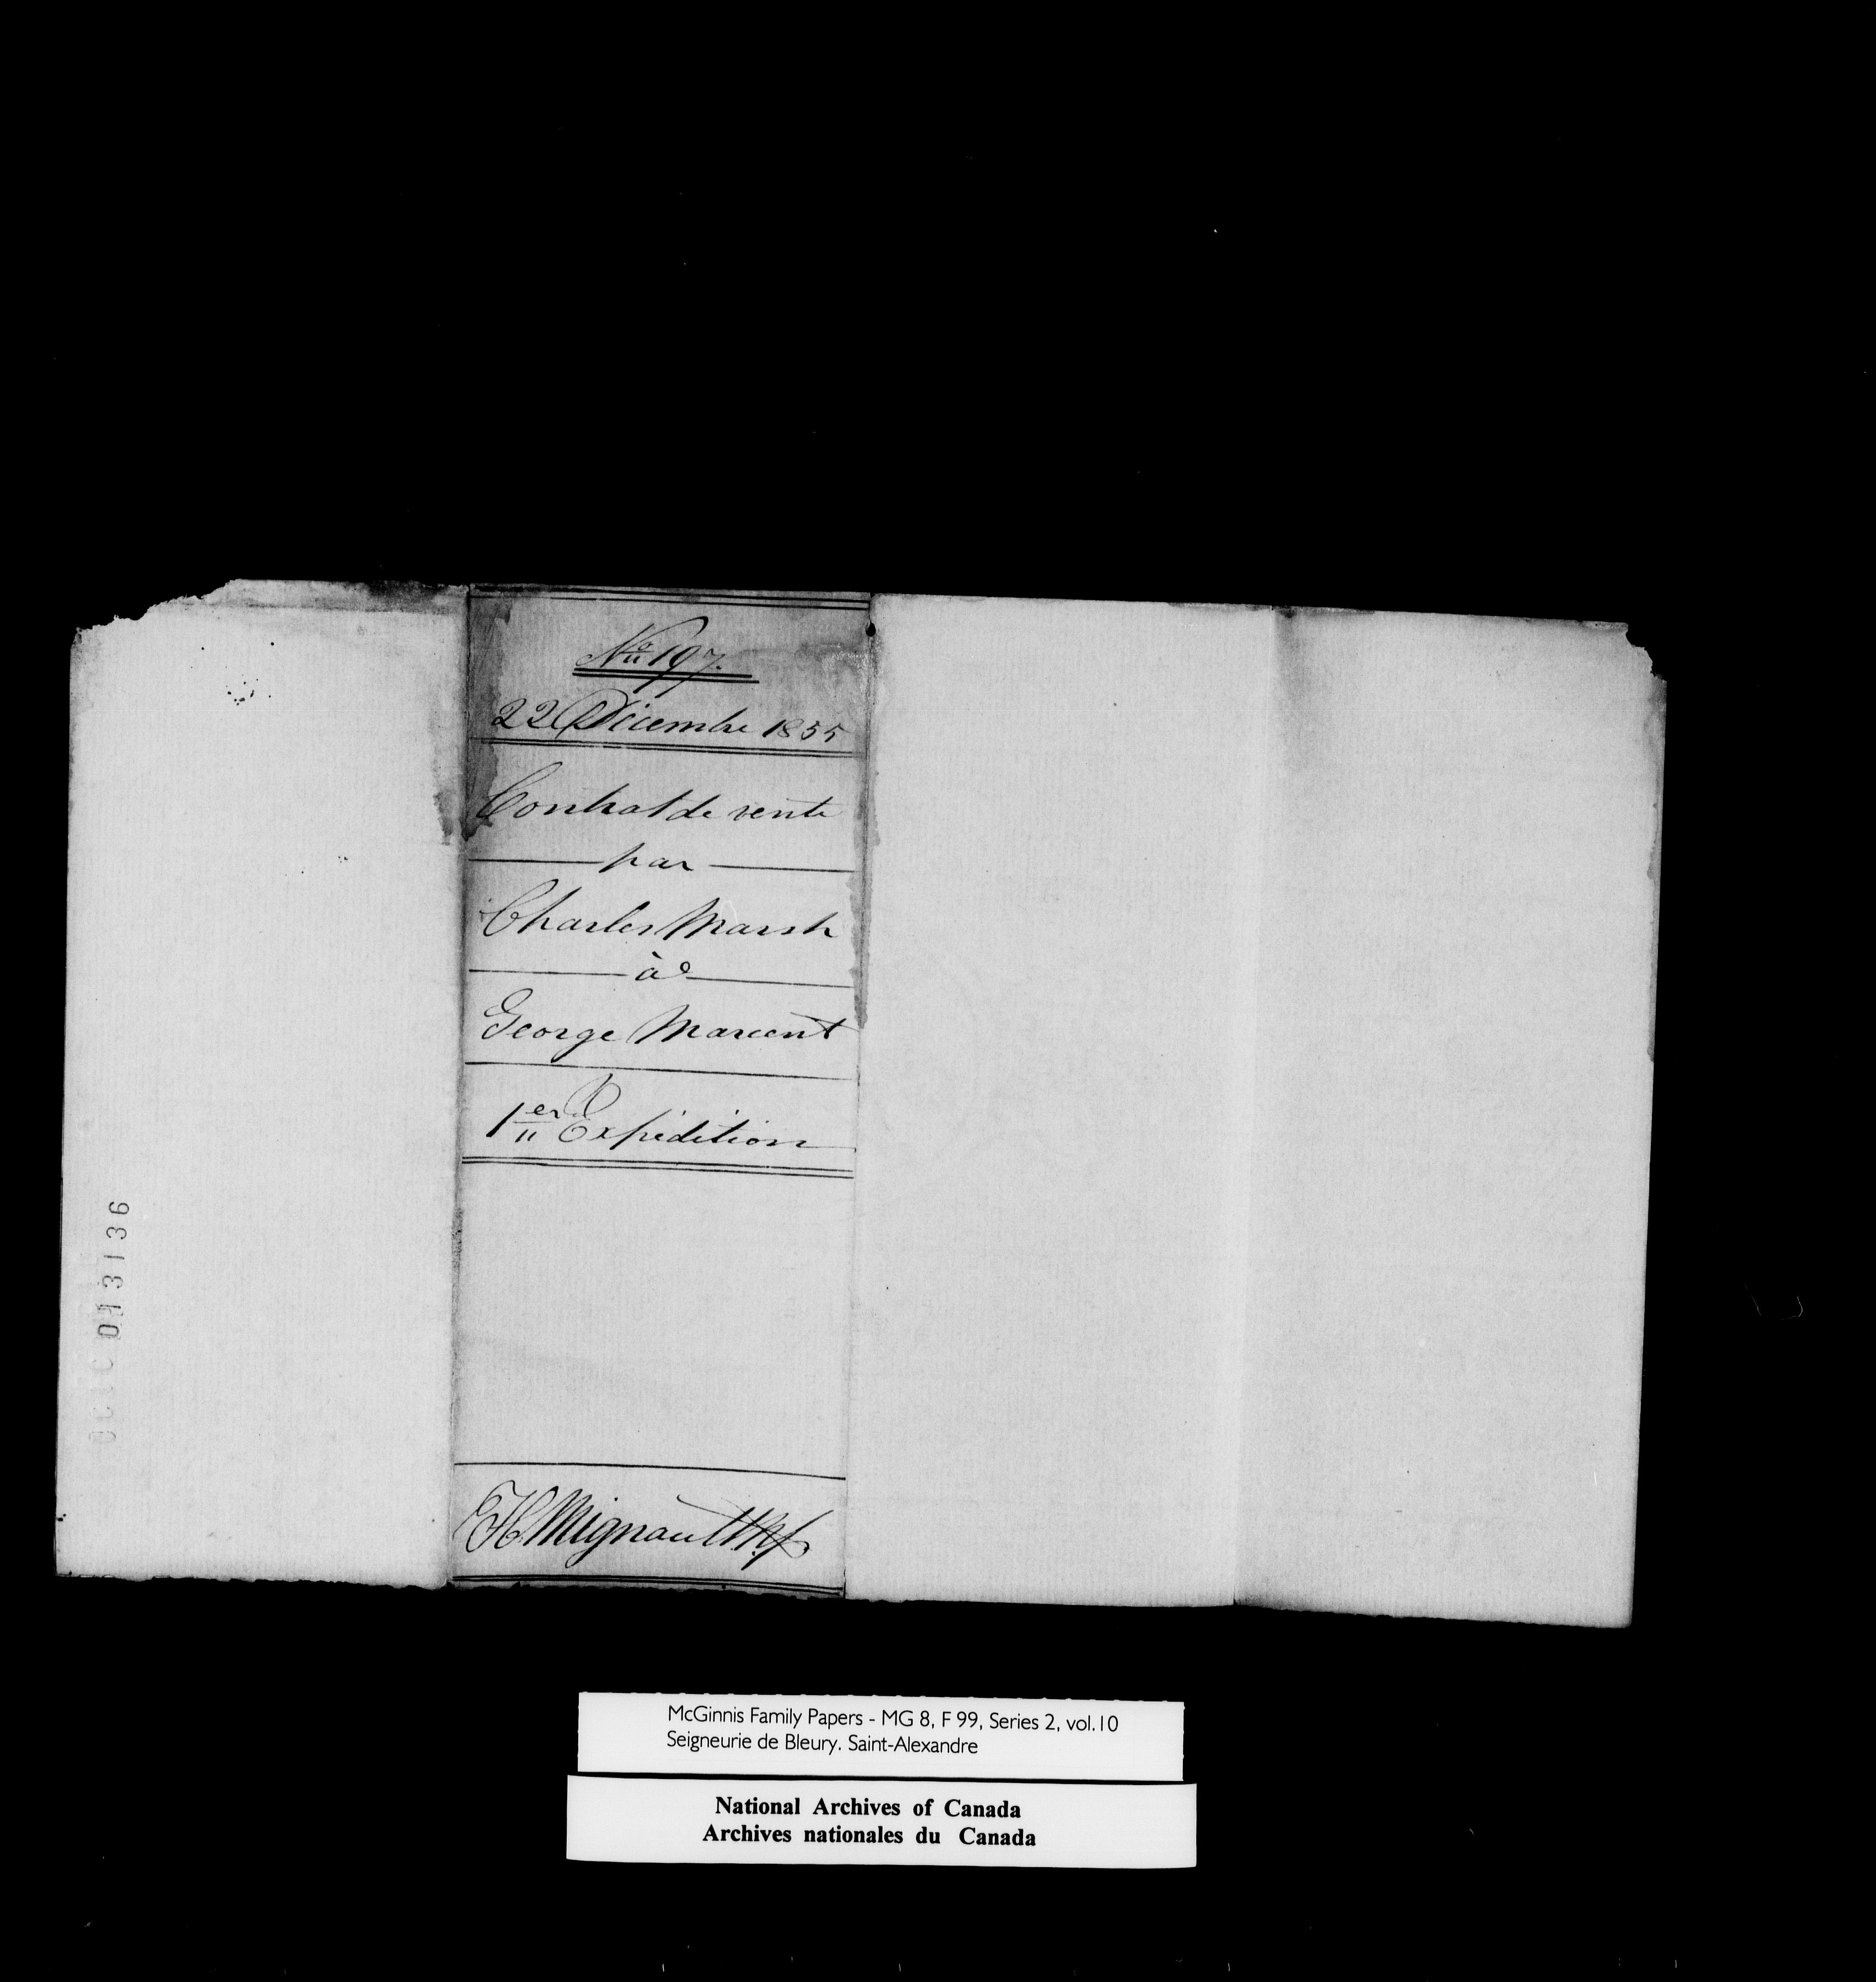 No 197.
22 Décembre 1855
Contrat de vente
par
Charles Marsh
à
George Marcent
1er Expédition
H. Mignault N.P.
013136
McGinnis Family Papers - MG 8, F 99, Series 2, vol.10
Seigneurie de Bleury. Saint-Alexandre
National Archives of Canada
Archives nationales du Canada